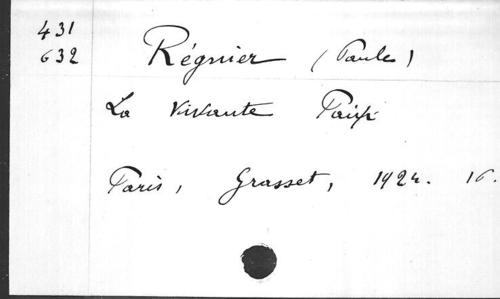 431
632
Régnier (Paule)
La vivante Paix
Paris, Grasset, 1924. 16.